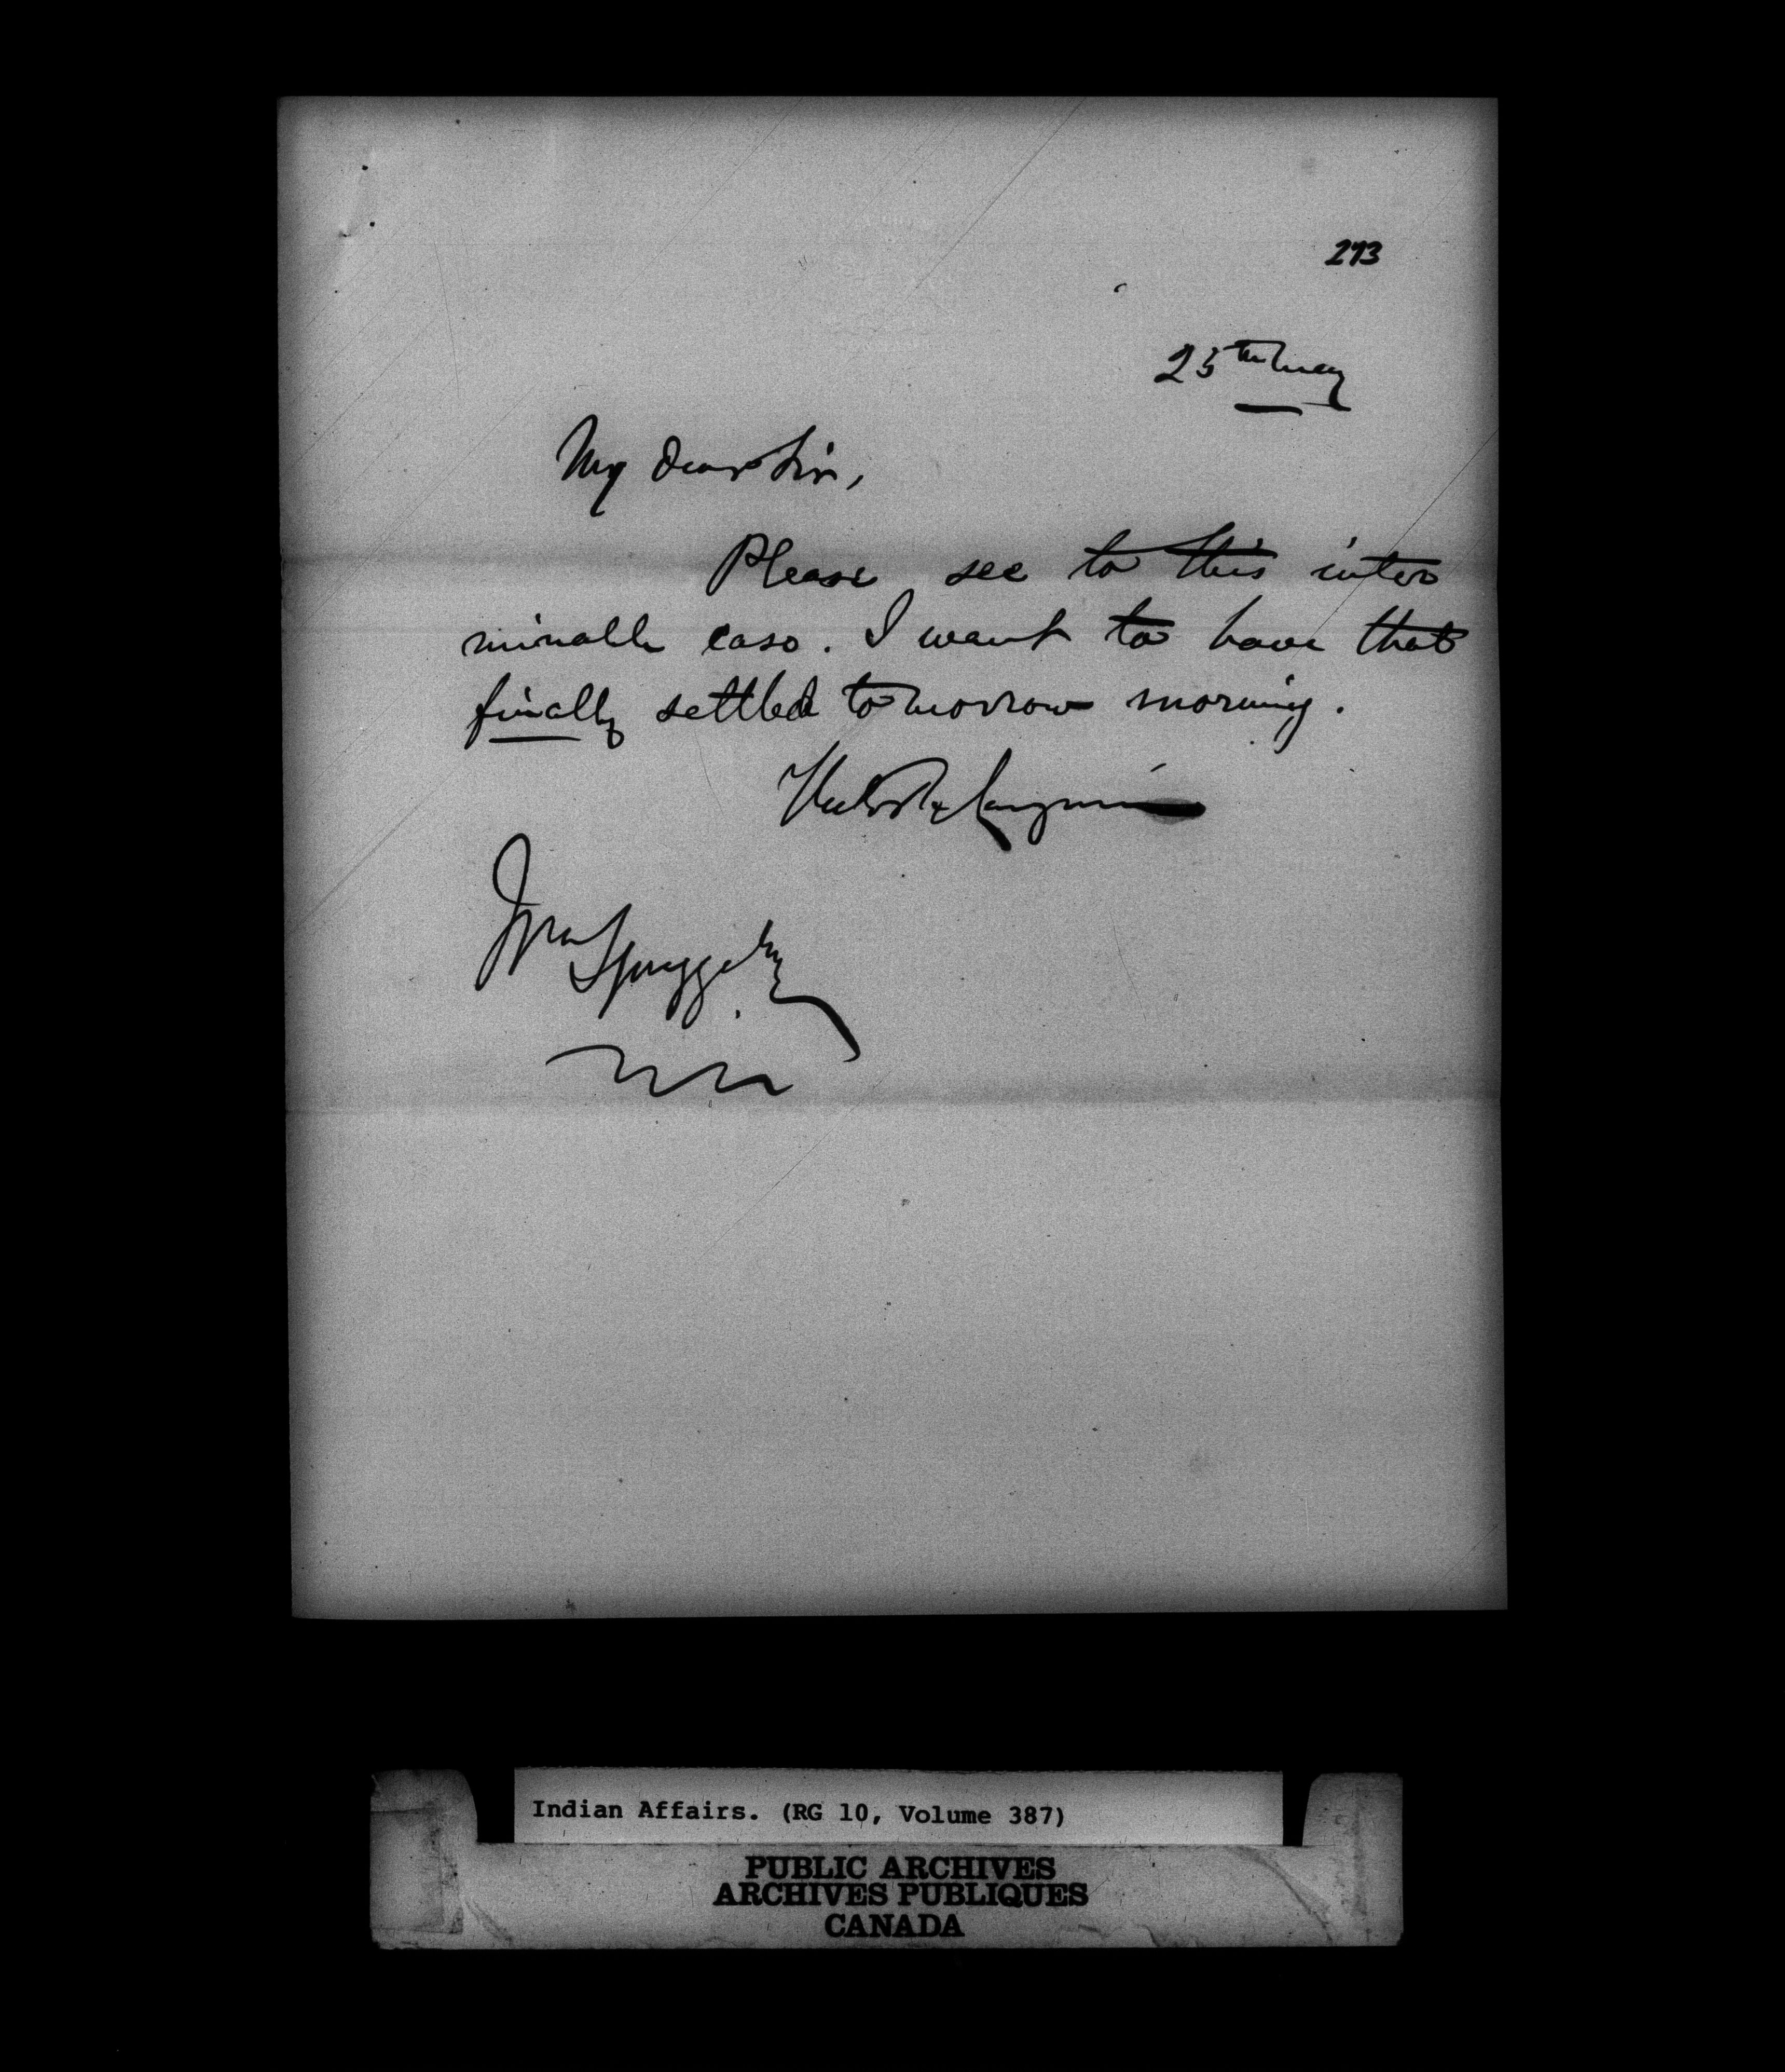 273
25th May
My dear Sir,
Please see to this inter
minable case. I want to have that
finally settled tomorrow morning.
Hector L. Langevin
Wm Spragge Esq
Indian Affairs. (RG 10, Volume 387)
PUBLIC ARCHIVES
ARCHIVES PUBLIQUES
CANADA